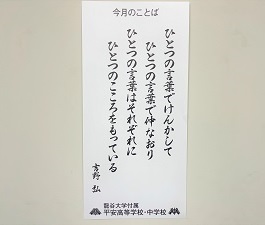 今月のことば
ひとつの言葉でけんかして
ひとつの言葉で仲なおり
ひとつの言葉はそれぞれに
ひとつのこころをもっている
吉野 弘
龍谷大学付属
平安高等学校・中学校